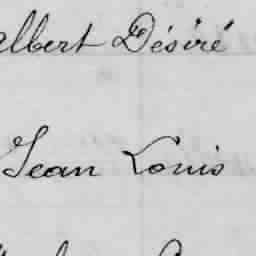 Albert Désiré
Jean Louis